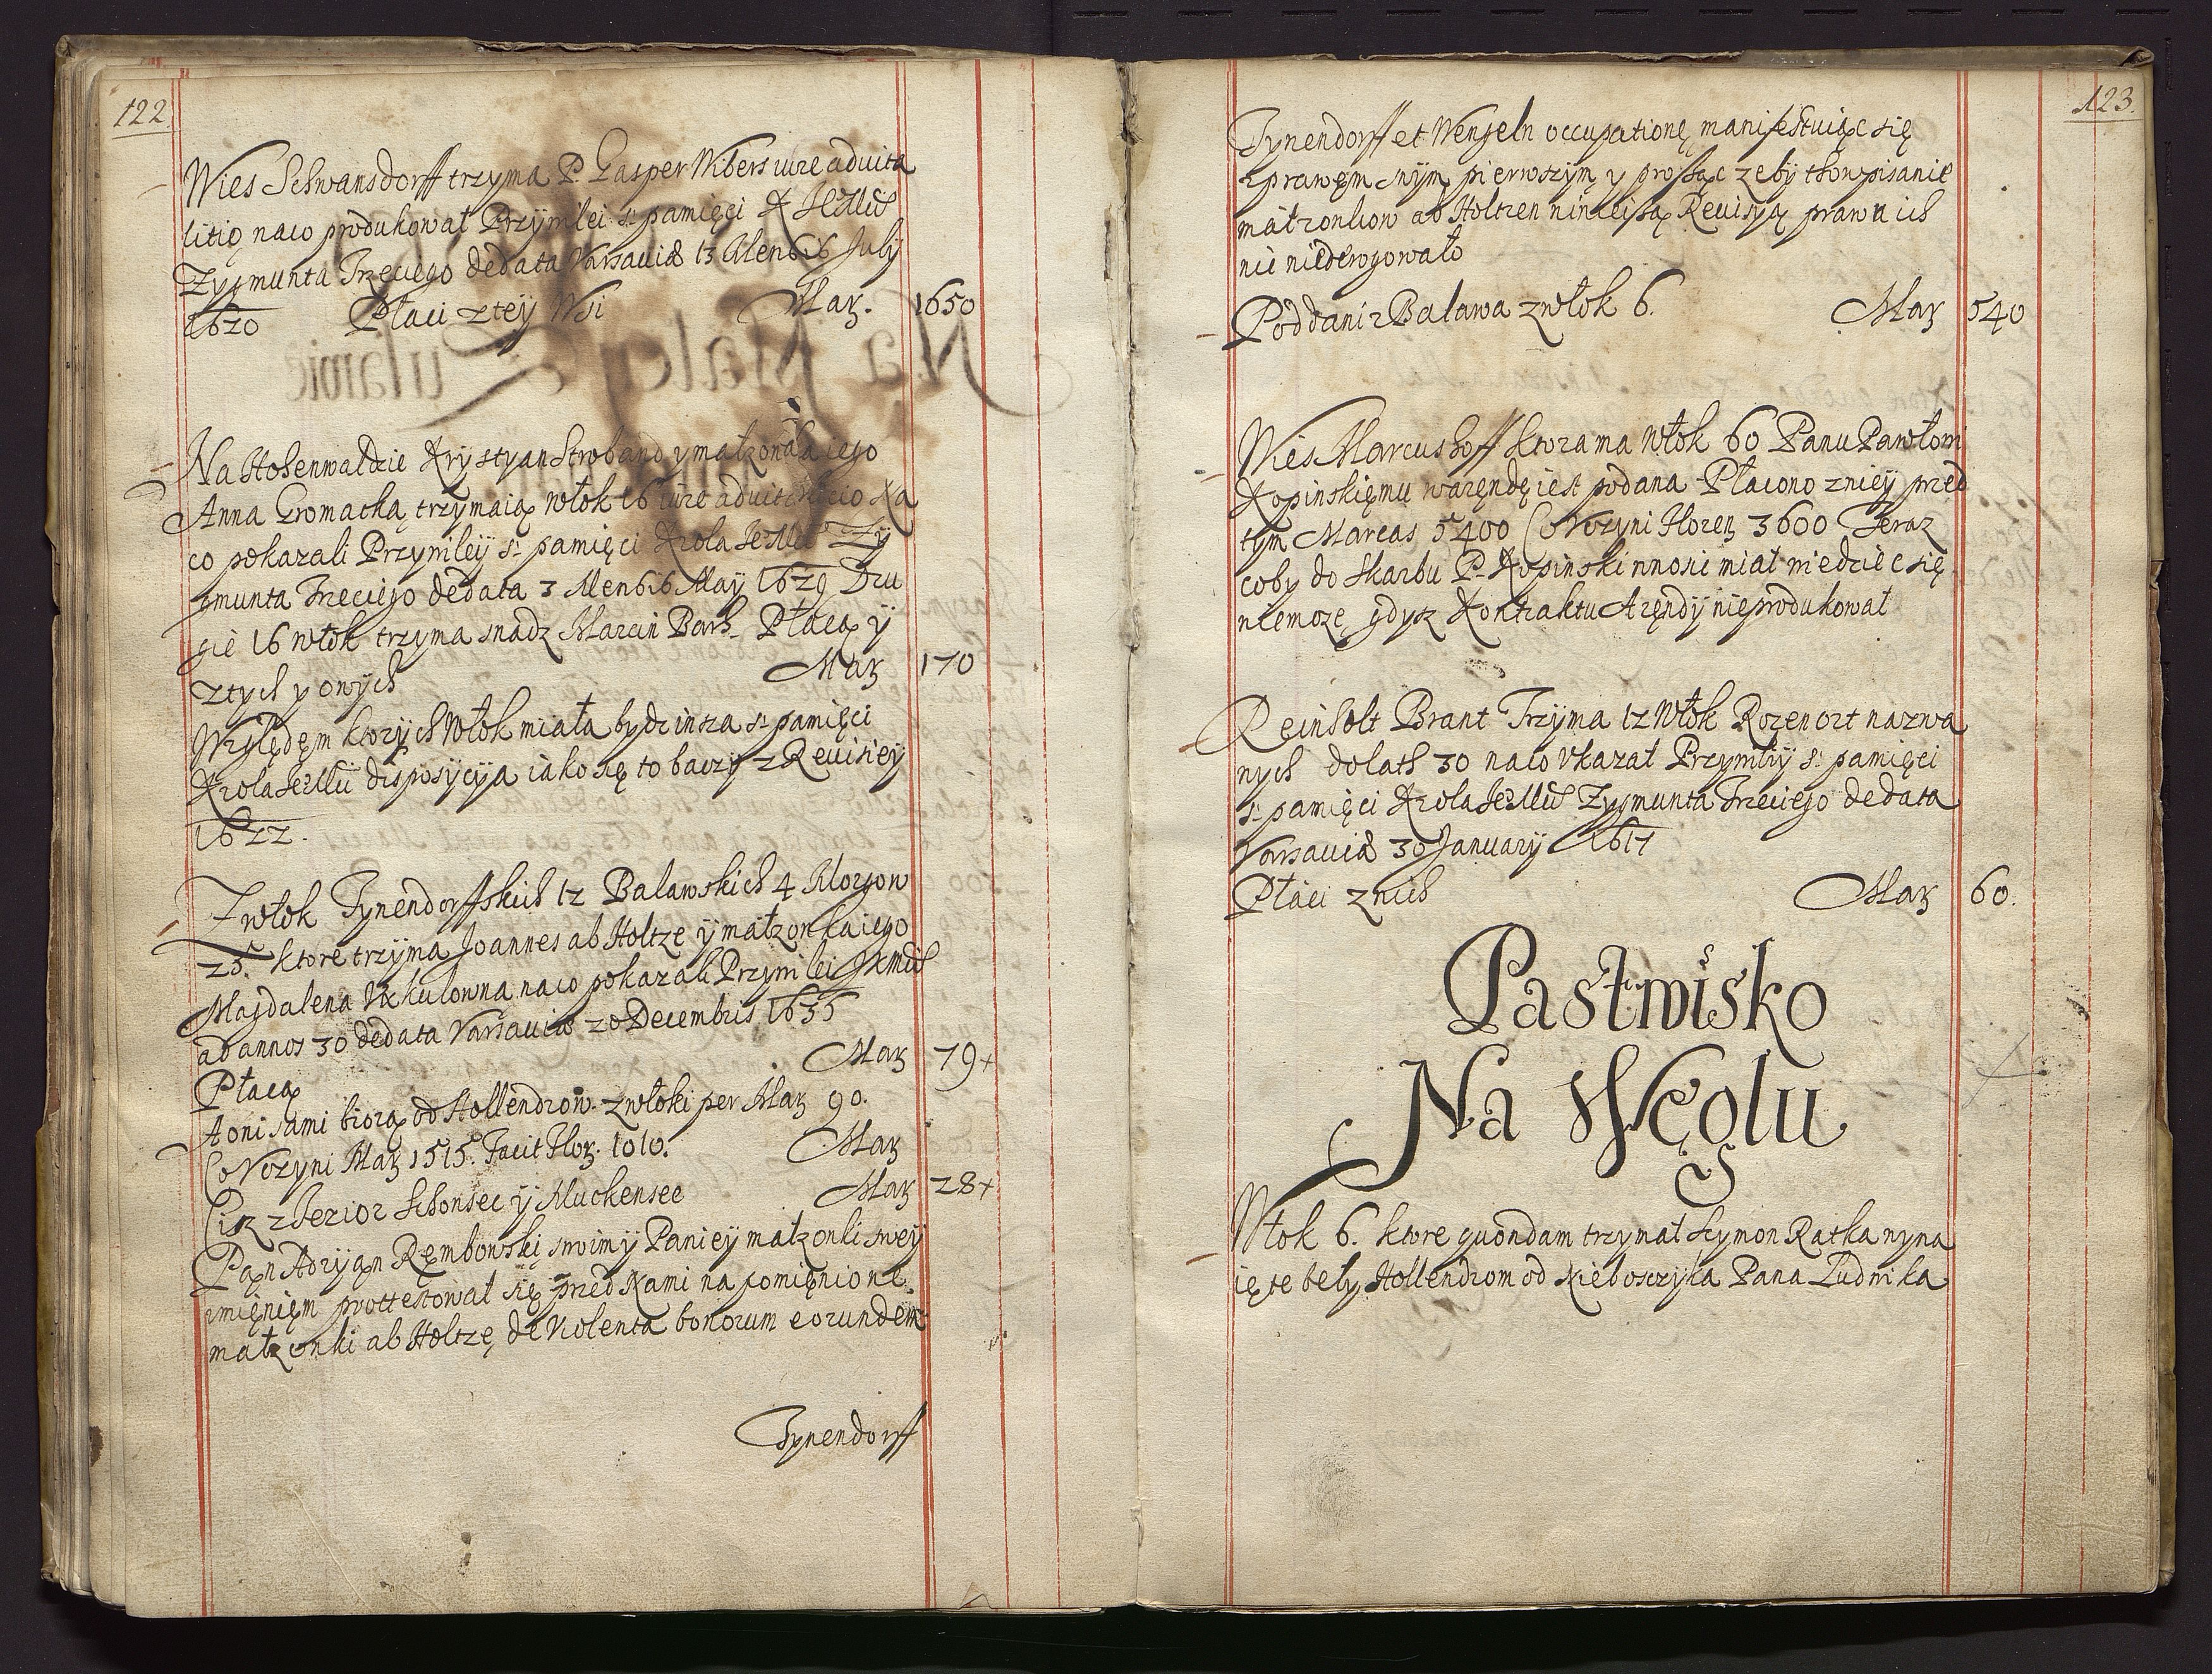 122.
Wies Schwansdorff trzyma P. Gasper Wibers iure advita
litio naco produkował Przywilei S: pamięci K JeoMci
Zygmunta Trzeciego de data Varsaviæ 13 Mensis July
1620 Płaci z tey Wsi Marz. 1650
Na Hohenwaldzie Krystyan Stroband y małzonka iego
Anna Gromacka trzymaią włok 16 iure advitalitio Na
co pokazali Przywiley S: pamięci Krola JeoMci Zy
gmunta Trzeciego de data 3 Mensis May 1629 Dru
gie 16 włok trzyma snadz Marcin Barh. Płacą ÿ
z tych y owych Marz 170
Względem ktorych Włok miała bydz insza S: pamięci
Krola JeoMci disposycya iako się to baczy z Revisiey
1622.
Z włok Tynendorffskich 12 Balawskich 4 Morgow
25. ktore trzyma Joannes ab Holtze ÿ małzonka iego
Magdalena Vxkulowna naco pokazali Przywilei JKMci
ad annos 30 de data Varsaviæ 20 Decembris 1635
Płacą Marz 79+
A oni sami biorą od Hollendrow z włoki per Marz 90.
Co Vczyni Marz 1515. Facit Flor. 1010. Marz
Cisz z Jezior Schonsee ÿ Muckensee Marz 28+
Pan Adryan Rembowski swoimy Paniey małzonki swey
imieniem prottestował się przed Nami na pomienione
małzonki ab Holtze de Violenta bonorum eorundem
Tynendorff
123.
Tynendorff et Wengeln occupationę manifestuiąc się
z prawem swÿm pierwszym y prosząc zeby tho wpisanie
małzonkow ab Holtzen ninieiszą Revisyą prawu ich
nic niederogowało
Poddani z Balawa z włok 6. Marz 540
Wies Marcushoff ktora ma Włok 60 Panu Pawłowi
Kopinskiemu w arendę iest podana Płacono z niey przed
tym Marcas 5400 Co Vczyni Floren 3600 Teraz
coby do Skarbu P. Kopinski wnosic miał wiedziec się
niemoze gdysz Kontraktu Arendy nieprodukował
Reinholt Brant Trzyma 12 Włok Rozenort nazwa
nych do lath 30 naco Vkazał Przywiliy S: pamięci
S: pamięci Krola JeoMci Zygmunta Trzeciego de data
Varsaviæ 30 January 1617
Płaci z nich Marz 60.
Pastwisko
Na Węglu
Włok 6. ktore quondam trzymał Szymon Ratka wyna
ięte były Hollendrom od Nieboszczyka Pana Ludwika